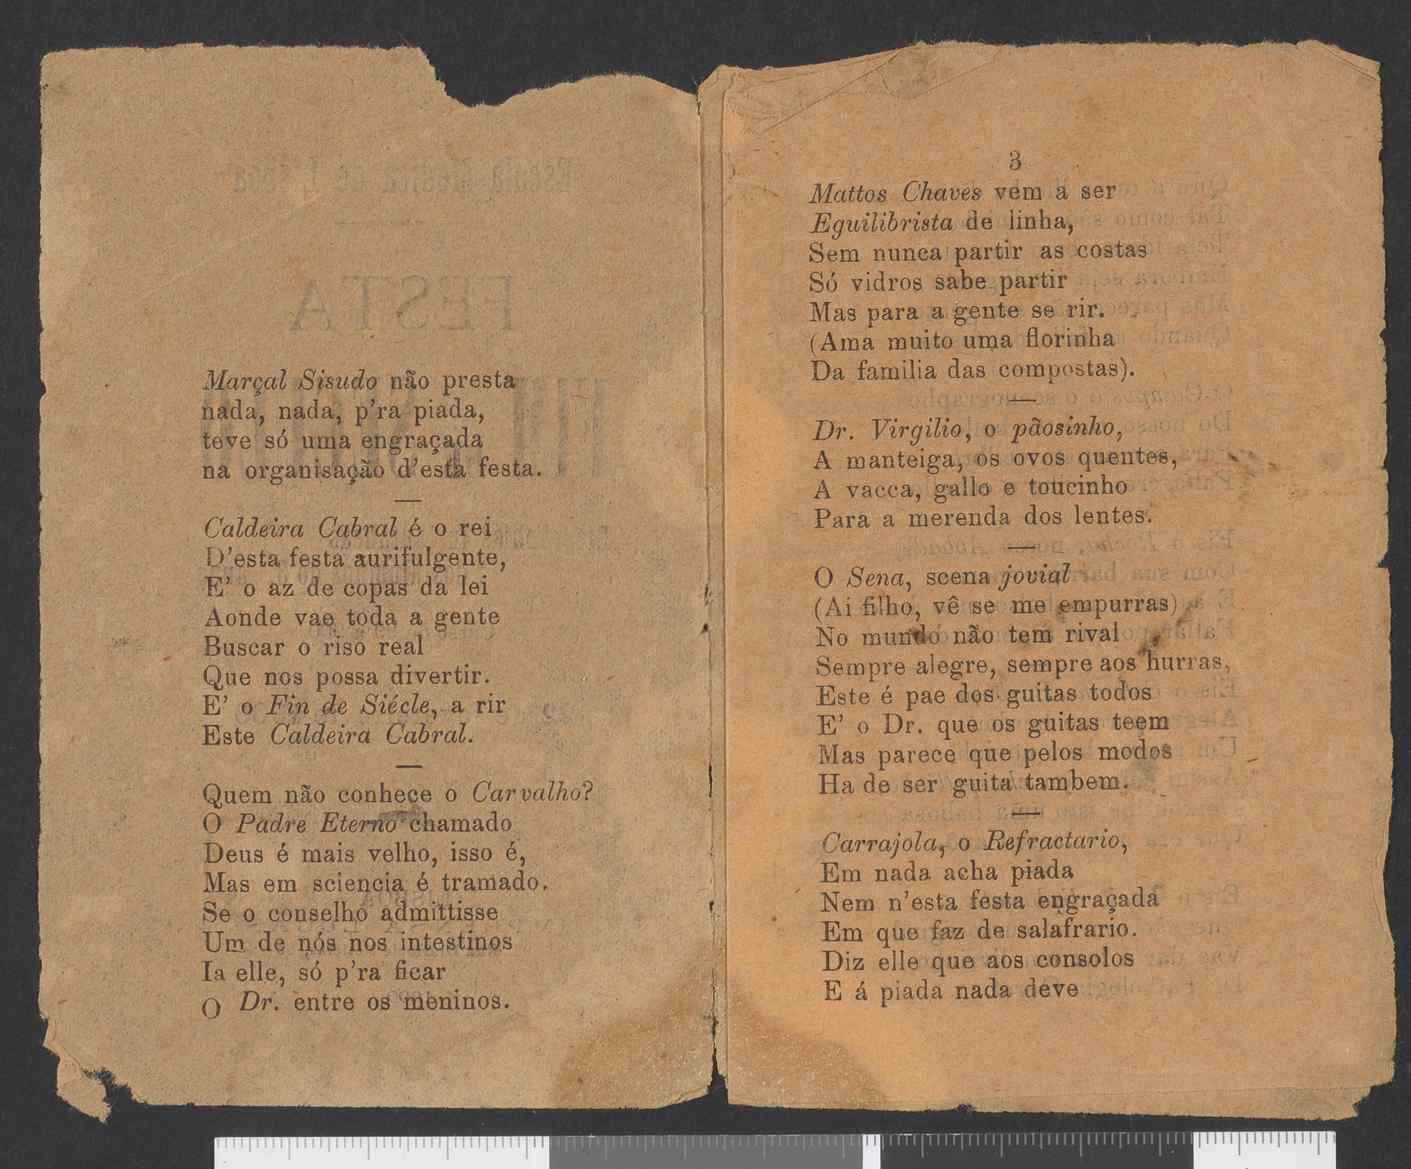 Marçal Sisudo não presta
nada, nada, p'ra piada,
teve só uma engraçada
na organisação d'esta festa.
Caldeira Cabral é o rei
D'esta festa aurifulgente,
E' o az de copas da lei
Aonde vae toda a gente
Buscar o riso real
Que nos possa divertir.
E' o Fin de Siécle, a rir
Este Caldeira Cabral.
Quem não conhece o Carvalho?
O Padre Eterno chamado
Deus é mais velho, isso é,
Mas em sciencia é tramado.
Se o conselho admittisse
Um de nós nos intestinos
Ia elle, só p'ra ficar
O Dr. entre os meninos.
3
Mattos Chaves vem a ser
Eguilibrista de linha,
Sem nunca partir as costas
Só vidros sabe partir
Mas para a gente se rir.
(Ama muito uma florinha
Da familia das compostas).
Dr. Virgilio, o pãosinho,
A manteiga, os ovos quentes,
A vacca, gallo e toucinho
Para a merenda dos lentes.
O Sena, scena jovial
(Ai filho, vê se me empurras)
No mundo não tem rival
Sempre alegre, sempre aos hurras,
Este é pae dos guitas todos
E' o Dr. que os guitas teem
Mas parece que pelos modos
Ha de ser guita tambem.
Carrajola, o Refractario,
Em nada acha piada
Nem n'esta festa engraçada
Em que faz de salafrario.
Diz elle que aos consolos
E á piada nada deve